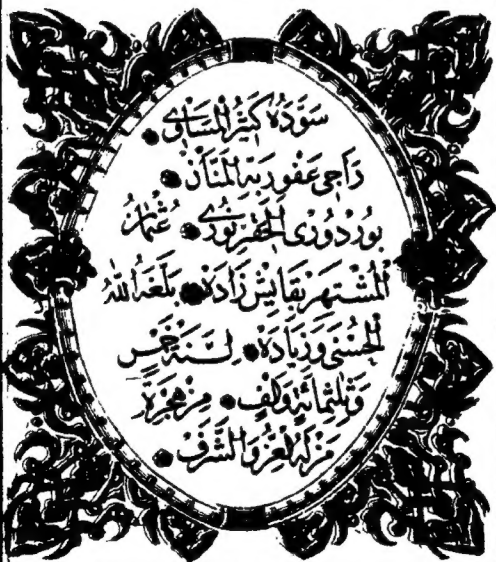 سَوَّدَهُ كَثِيرُ الْمَسَاوِي
رَاجِي عَفْوِ رَبِّهِ الْمَنَّانْ
بوردورى الحقير نورى عُثْمَانُ
الْمُشْتَهِرُ بِقَايِشْ زَادَهْ بَلَّغَهُ اللّٰهُ
الْحُسْنٰى وَزِيَادَهْ لِسَنَةِ خَمْسٍ
وَثَلٰثِمِائَةٍ وَاَلْفٍ مِنْ هِجْرَةِ
مَنْ لَهُ الْعِزُّ وَالشَّرَفْ